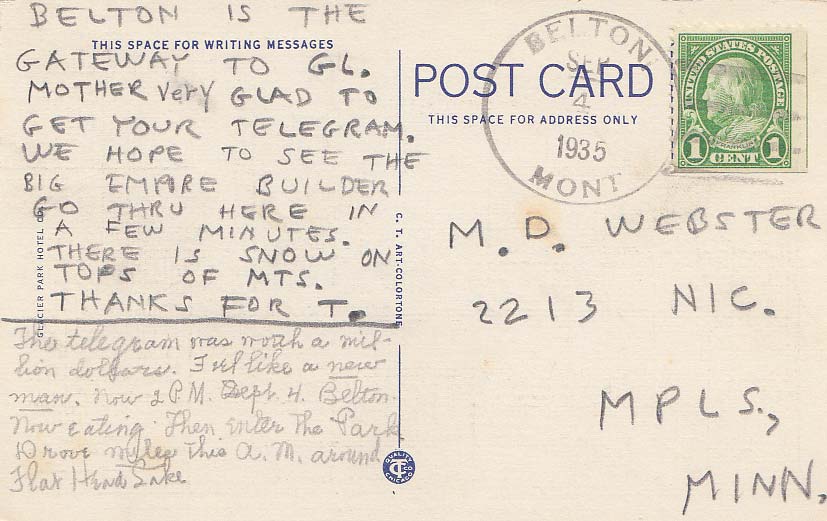 BELTON IS THE
THIS SPACE FOR WRITING MESSAGES
GATEWAY TO GL.
MOTHER very GLAD TO
GET YOUR TELEGRAM.
WE HOPE TO SEE THE
BIG EMPIRE BUILDER
GO THRU HERE IN
A FEW MINUTES.
THERE IS SNOW ON
TOPS OF MTS.
THANKS FOR T.
The telegram was worth a mil-
lion dollars. Feel like a new
man. Now 2 P.M. Sept. 4. Belton.
Now eating. Then enter the Park
Drove miles this A.M. around
Flat Head Lake
GLACIER PARK HOTEL CO.
C. T. ART-COLORTONE
POST CARD
THIS SPACE FOR ADDRESS ONLY
BELTON
SEP
4
1935
MONT
UNITED STATES POSTAGE
FRANKLIN
1 CENT 1
M. D. WEBSTER
2213 NIC.
MPLS.,
MINN.
QUALITY
CT CO
CHICAGO